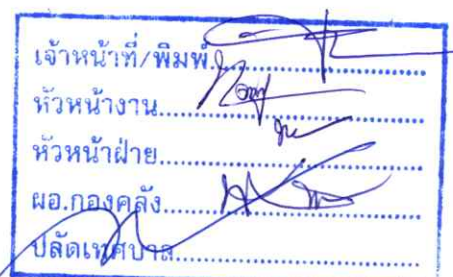 เจ้าหน้าที่/พิมพ์..............................
หัวหน้างาน..............................
หัวหน้าฝ่าย..............................
ผอ.กองคลัง..............................
ปลัดเทศบาล..............................